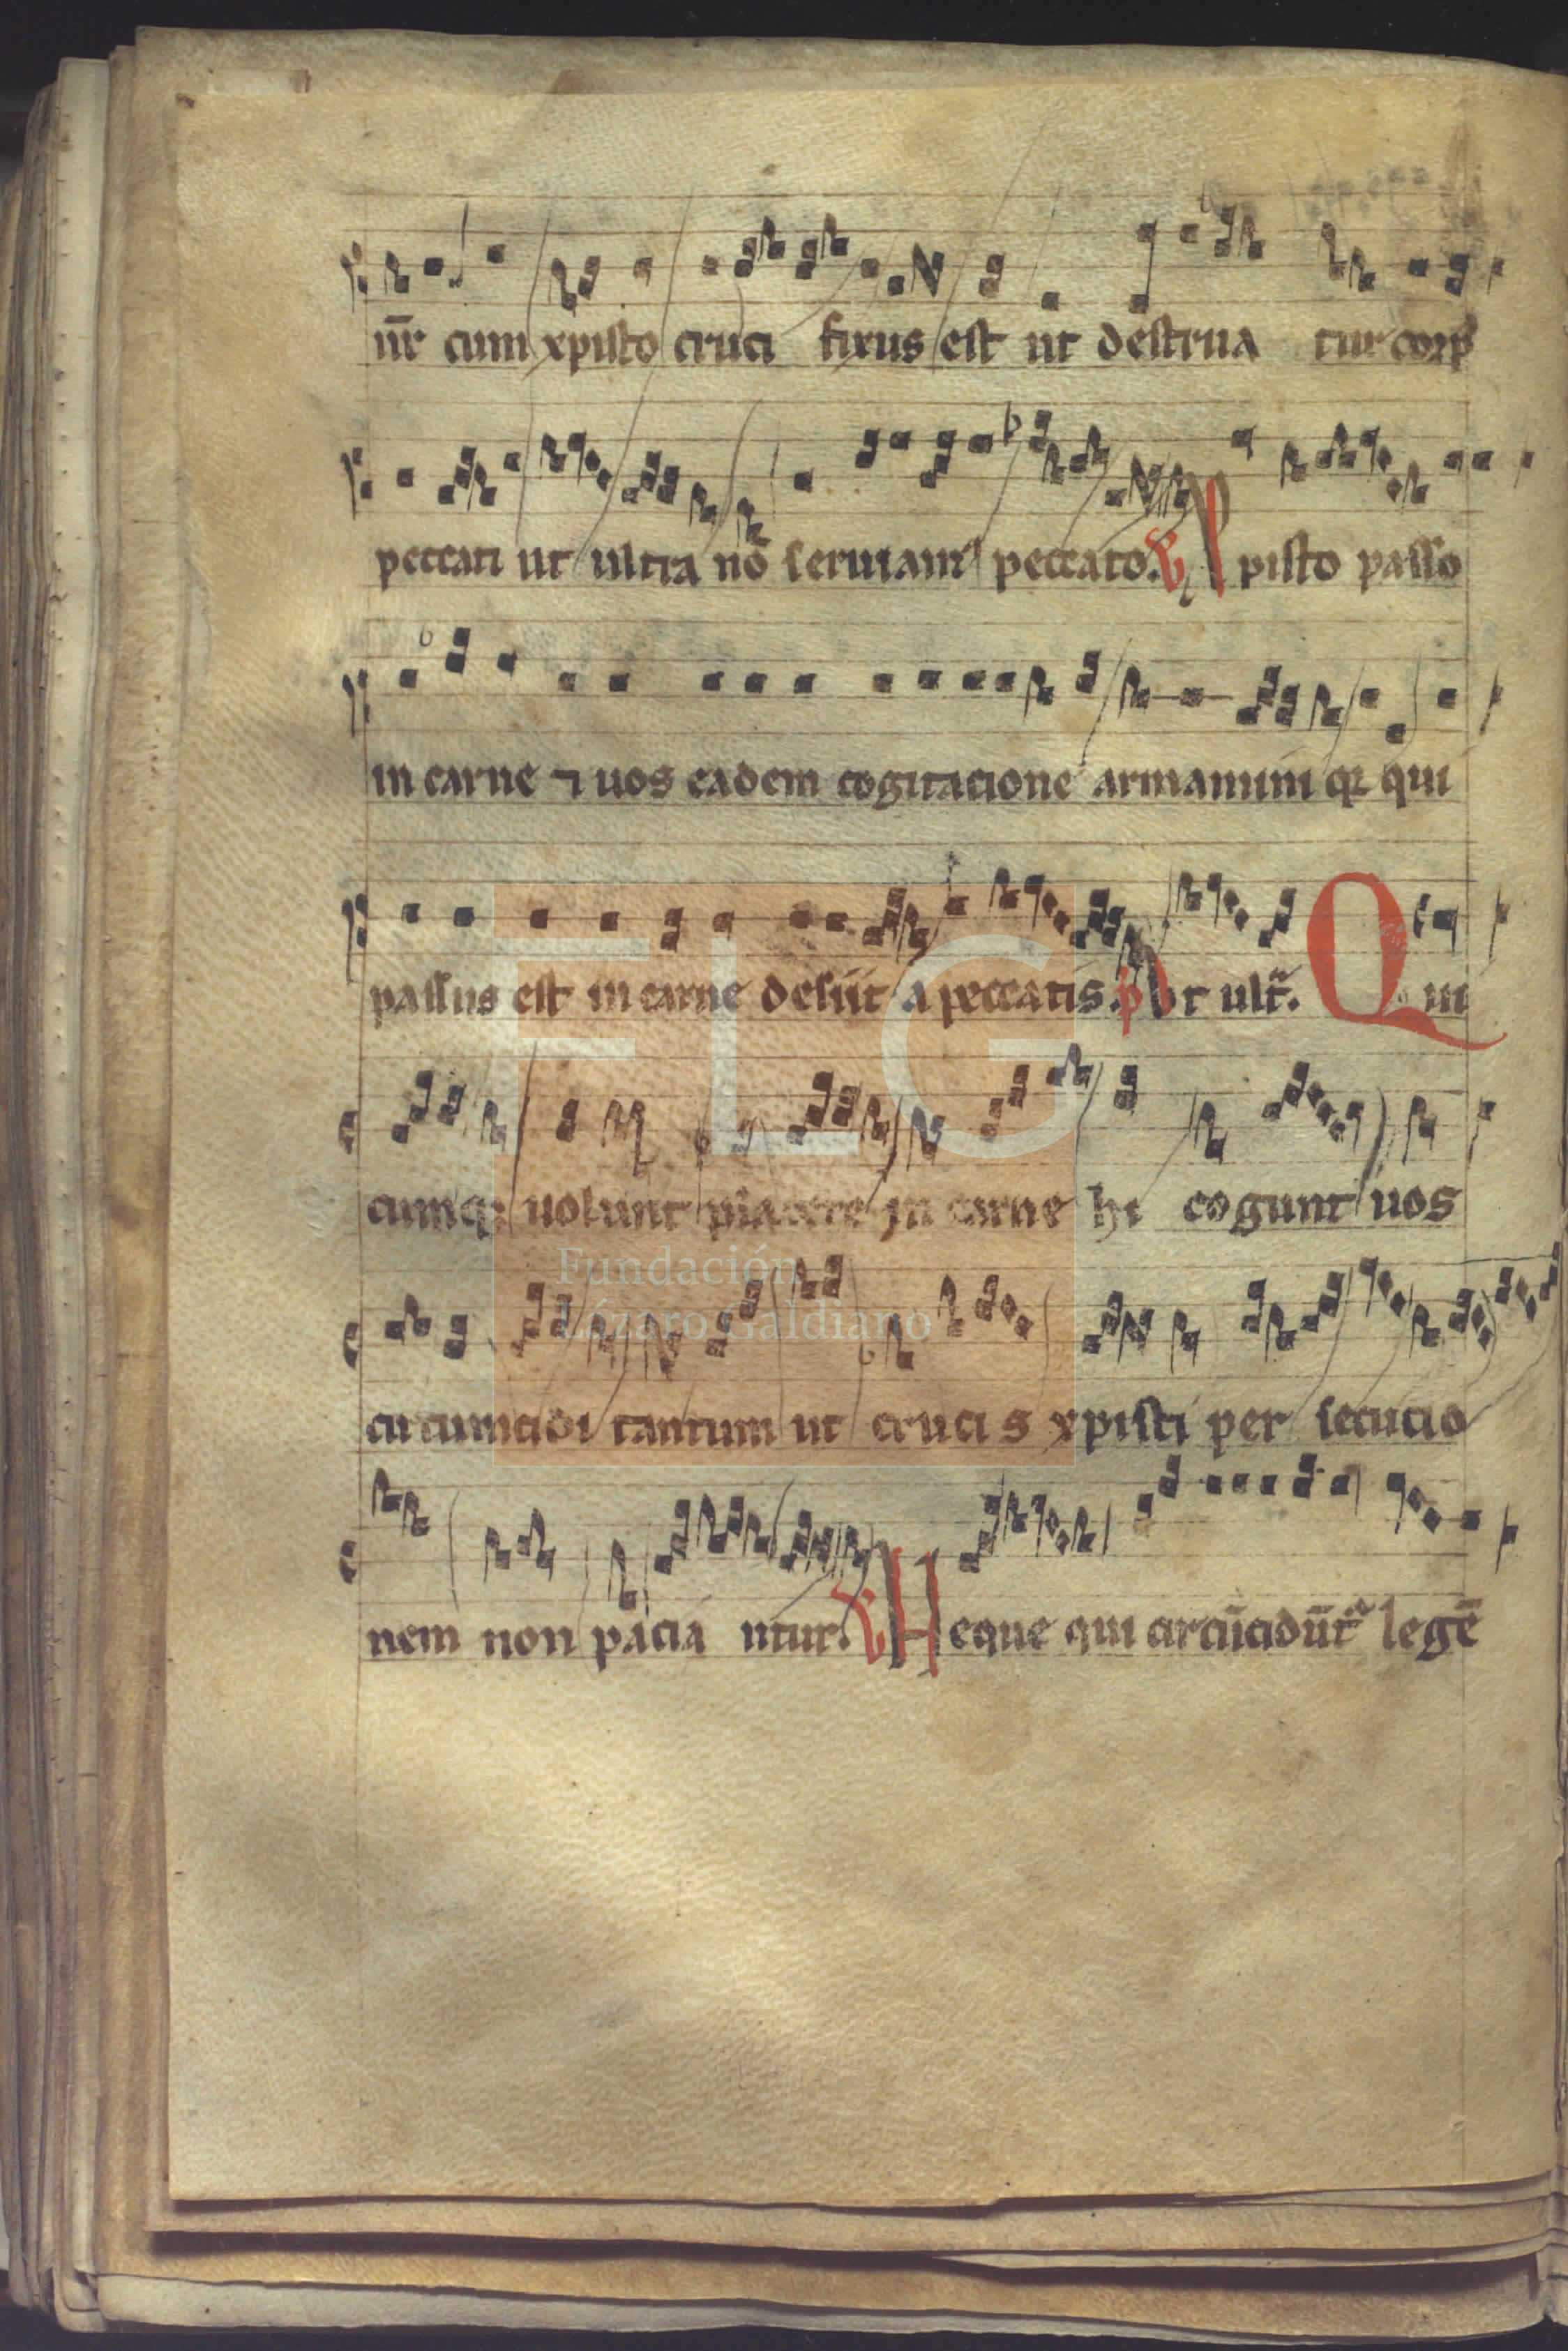 nr̄ cum xpisto cruci fixus est ut destrua tur corpꝰ
peccati ut ultra nō seruiamꝰ peccato. ℣ Xpisto passo
in carne ⁊ uos eadem cogitacione armamini qꝛ qui
passus est in carne desiit a peccatis. p Ut ult̄. Qui
cumqꝫ uolunt placere in carne hi cogunt uos
circumcidi tantum ut cruci s xpisti per secucio
nem non pacia ntur. ℣ Neque qui circūcidūt᷑ legē
FLG
Fundación
Lázaro Galdiano